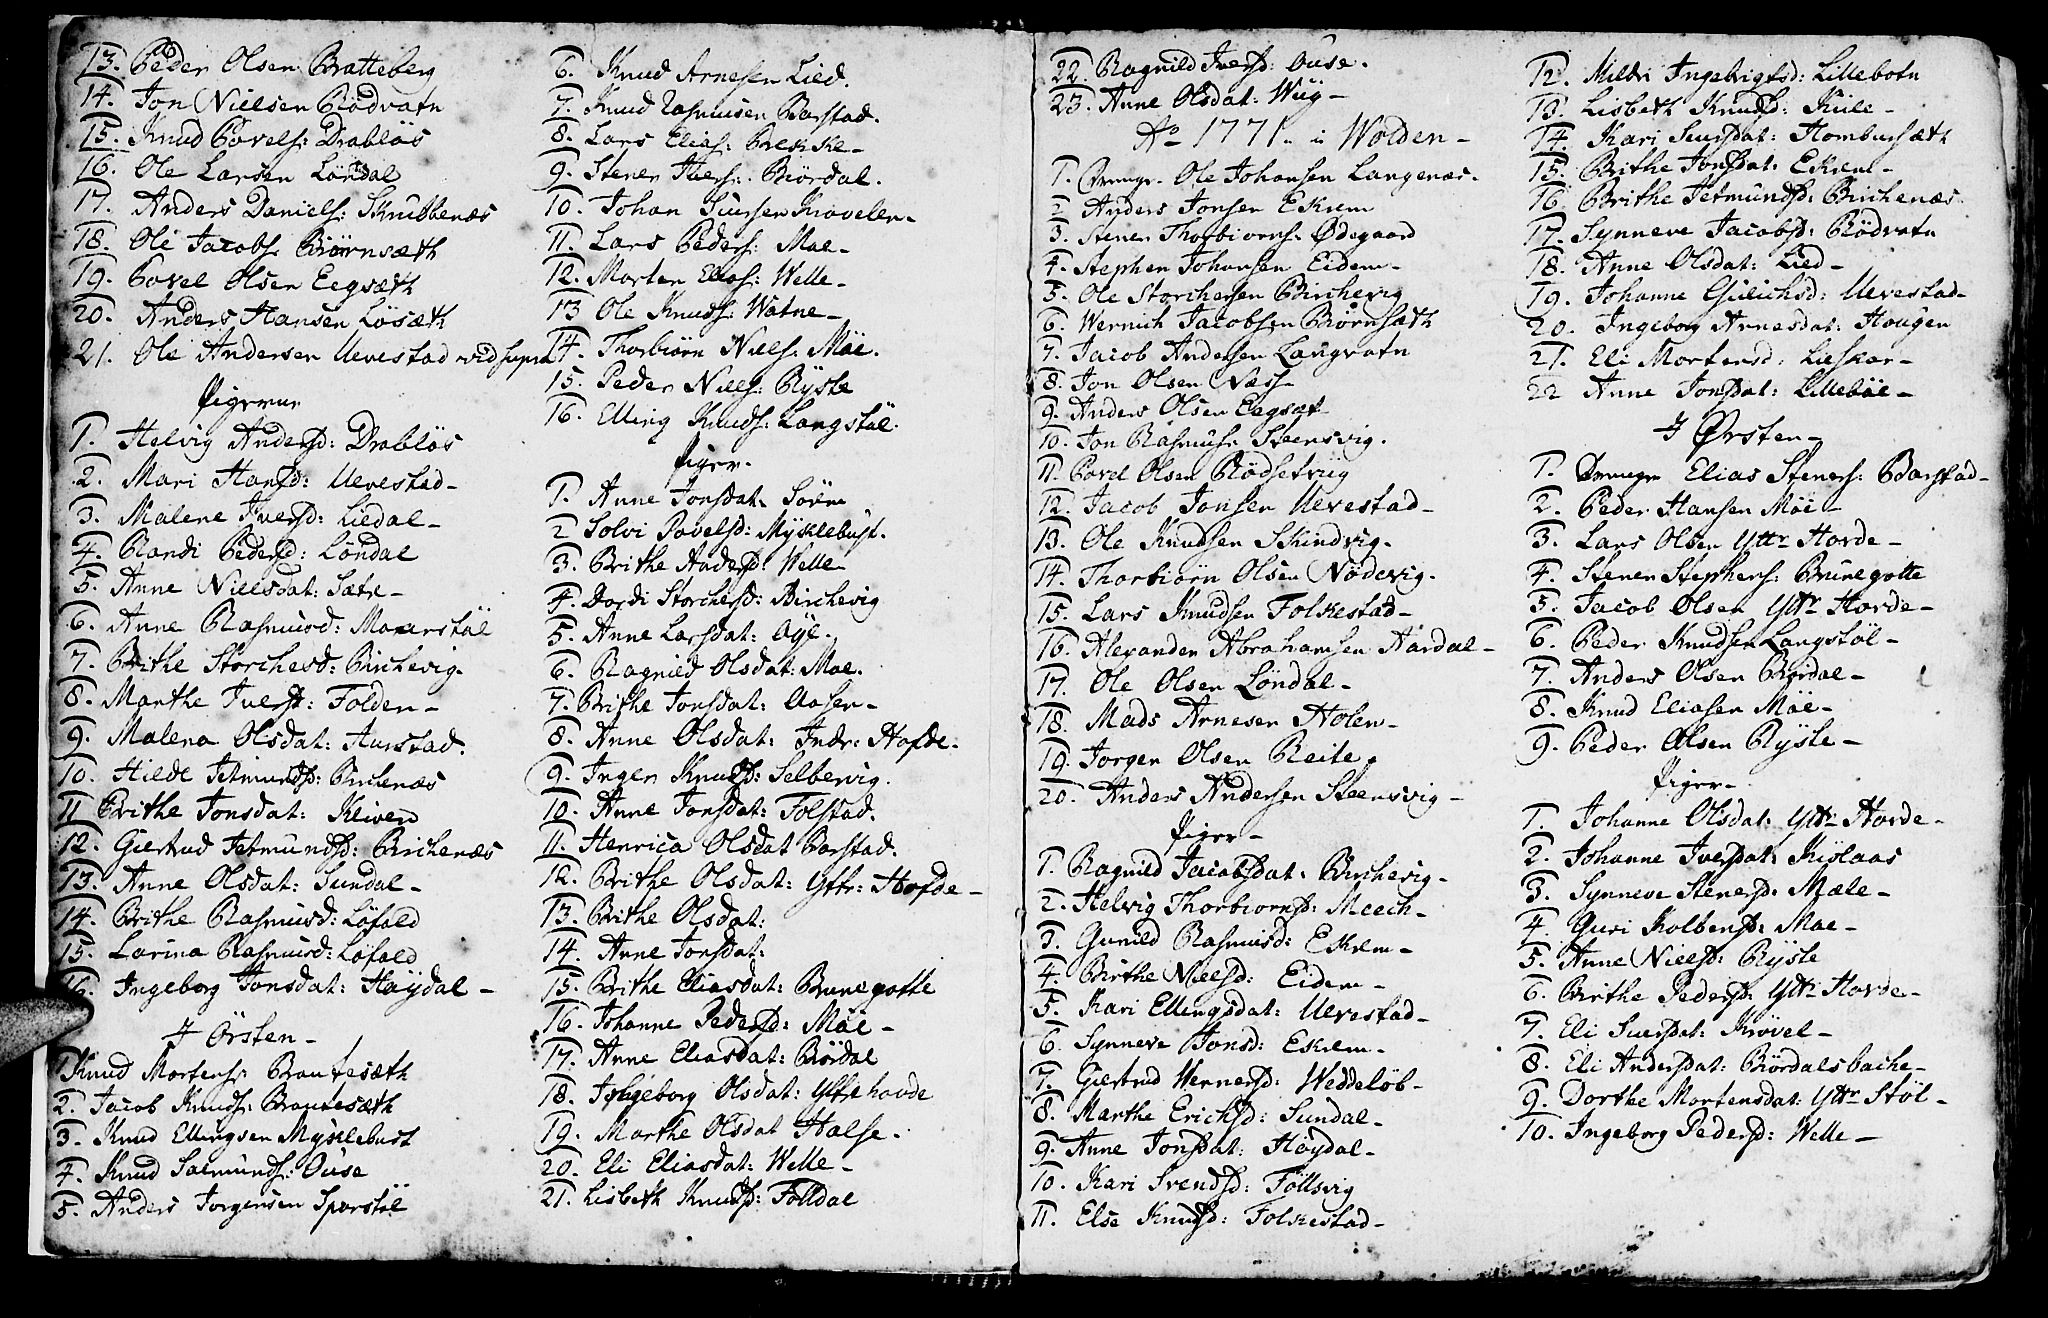 13. Peder Olsen Bratteberg
14. Jon Nielsen Rödvatn
15. Knud Povels: Drabløs
16. Ole Larsen Löndal
17. Anders Daniels: Skrubbenæs
18. Ole Jacobs: Biørnsæth
19. Povel Olsen Eegsæth
20. Anders Hansen Løsæth
21. Ole Andersen Uevestad
Pigerne
1. Helvig Andersd: Drabløs
2. Mari Hansd: Uevestad-
3. Malene Iversd: Liedal-
4. Randi Pedersd: Löndal
5. Anne Nielsdat: Sætre-
6. Anne Rasmusd:
7. Brithe Storchesd: Birchevig-
8. Marthe Iversd: Folden-
9. Malena Olsdat: Aurstad.
10. Hilde Jetmundsd: Birchenæs
11 Brithe Jonsdat: Kliven
12. Giertrud Jetmundsd: Birchenæs
13. Anne Olsdat: Sundal-
14. Brithe Rasmusd: Löfald
15. Larina Rasmusd: Löfald
16. Ingeborg Jonsdat: Høydal-
I Örsten-
1 Knud Mortens: Brautesæth
2. Jacob Knuds: Brautesæth
3. Knud Ellingsen Myklebust
4. Knud Salmunds: Ouse
5. Anders Jørgensen Sporstöl
6. Knud Arnesen Lied.
7. Knud Rasmusen Barstad.
8. Lars Elias: Brekke-
9. Stener Ivers: Biørdal.
10. Johan Siursen
11. Lars Peders: Moe-
12. Morten Elias: Welle-
13 Ole Knuds: Watne-
14. Thorbiørn Niels: Möe.
15. Peder Niels: Ryste
16. Elling Knuds: Langstöl.
Piger-
1. Anne Jonsdat:
2 Solvi Povelsd: Myklebust.
3. Brithe Andersd: Welle
4. Dordi Storchersd: Birchevig
5. Anne Larsdat: Aye-
6. Ragnild Olsdat: Moe.
7. Brithe Jonsdat: Aasen-
8. Anne Olsdat: Indr: Hofde.
9. Inger Knudsd: Selbervig.
10. Anne Jonsdat: Folstad.
11. Henrica Olsdat Barstad.
12. Brithe Olsdat: Yttr: Hofde-
13. Brithe Olsdat:
14. Anne Jonsdat:
15. Brithe Eliasdat: Brunegotte
16. Johanne Pedersd: Möe-
17. Anne Eliasdat: Biördal
18. Ingeborg Olsdat: Yttrehovde
19. Marthe Olsdat Halse.
20. Eli Eliasdat: Welle-
21. Lisbeth Knudsd: Folldal
22. Ragnild Iversd: Ouse.
23. Anne Olsdat: Wüg-
Ao 1771. i Wolden-
1. Drenge- Ole Johansen Langenæs.
2 Anders Jonsen Ekrem
3. Stener Thorbiørns: Ødegaard
4. Stephen Johansen Eidem-
5. Ole Storchersen Birchevig
6. Wernich Jacobsen Biørnsæth
7. Jacob Andersen Laugvatn
8. Jon Olsen Næss
9. Anders Olsen Eegsæt
10. Jon Rasmus: Steensvig.
11. Povel Olsen Rödsetviig
12. Jacob Jonsen Uevestad-
13. Ole Knudsen Skindvig-
14. Thorbiörn Olsen Nödevig-
15. Lars Knudsen Folkestad-
16. Alexander Abrahamsen Aardal-
17. Ole Olsen Löndal-
18. Mads Arnesen Holen-
19. Jorgen Olsen Reite.
20. Anders Andersen Steensvig-
Piger-
1. Ragnild Jacobsdat: Birchevig-
2. Helvig Thorbiornsd: Meech-
3. Gunild Rasmusd: Ekrem-
4. Birthe Nielsd: Eidem-
5. Kari Ellingsdat: Uevestad-
6. Synneve Jonsd: Ekrem-
7. Giertrud Wernersd: Weddeløb-
8. Marthe Erichsd: Sundal-
9. Anne Jonsdat: Høydal-
10. Kari Svendsd: Föllsvig
11. Else Knudsd: Folkestad-
12. Mildri Ingebrigtsd: Lillebotn
13. Lisbeth Knudsd: Kiile-
14. Kari Siursdat: Homburseth
15. Brithe Jonsdat: Ekrem-
16. Brithe Jetmundsd: Birchenæs
17. Synneve Jacobsd: Rödvatn
18. Anne Olsdat: Lied-
19. Johanne Gulichsd: Uevestad-
20. Ingeborg Arnesdat: Hougen
21. Eli Mortensd: Lieskar-
22 Anne Jonsdat: Lillebøe-
I Ørsten-
1. Drenge Elias Steners: Barstad-
2. Peder Hansen Möe-
3. Lars Olsen Yttr Hovde-
4. Stener Stephens: Brunegotte
5. Jacob Olsen Yttr Hovde-
6. Peder Knudsen Langstøl-
7. Anders Olsen Biørdal-
8. Knud Eliasen Möe-
9. Peder Olsen Ryste-
Piger-
1. Johanne Olsdat: Yttr: Hovde-
2. Johanne Iversdat: Kiølaas
3. Synneve Stenersd: Mæle-
4. Guri Kolbensd: Moe-
5. Anne Nielsd: Ryste
6. Birthe Pedersd: Yttr: Hovde-
7. Eli Siursdat: Krövel-
8. Eli Andersdat: Biördalsbache-
9. Dorthe Mortensdat: Yttr Støl-
10. Ingeborg Pedersd: Welle-